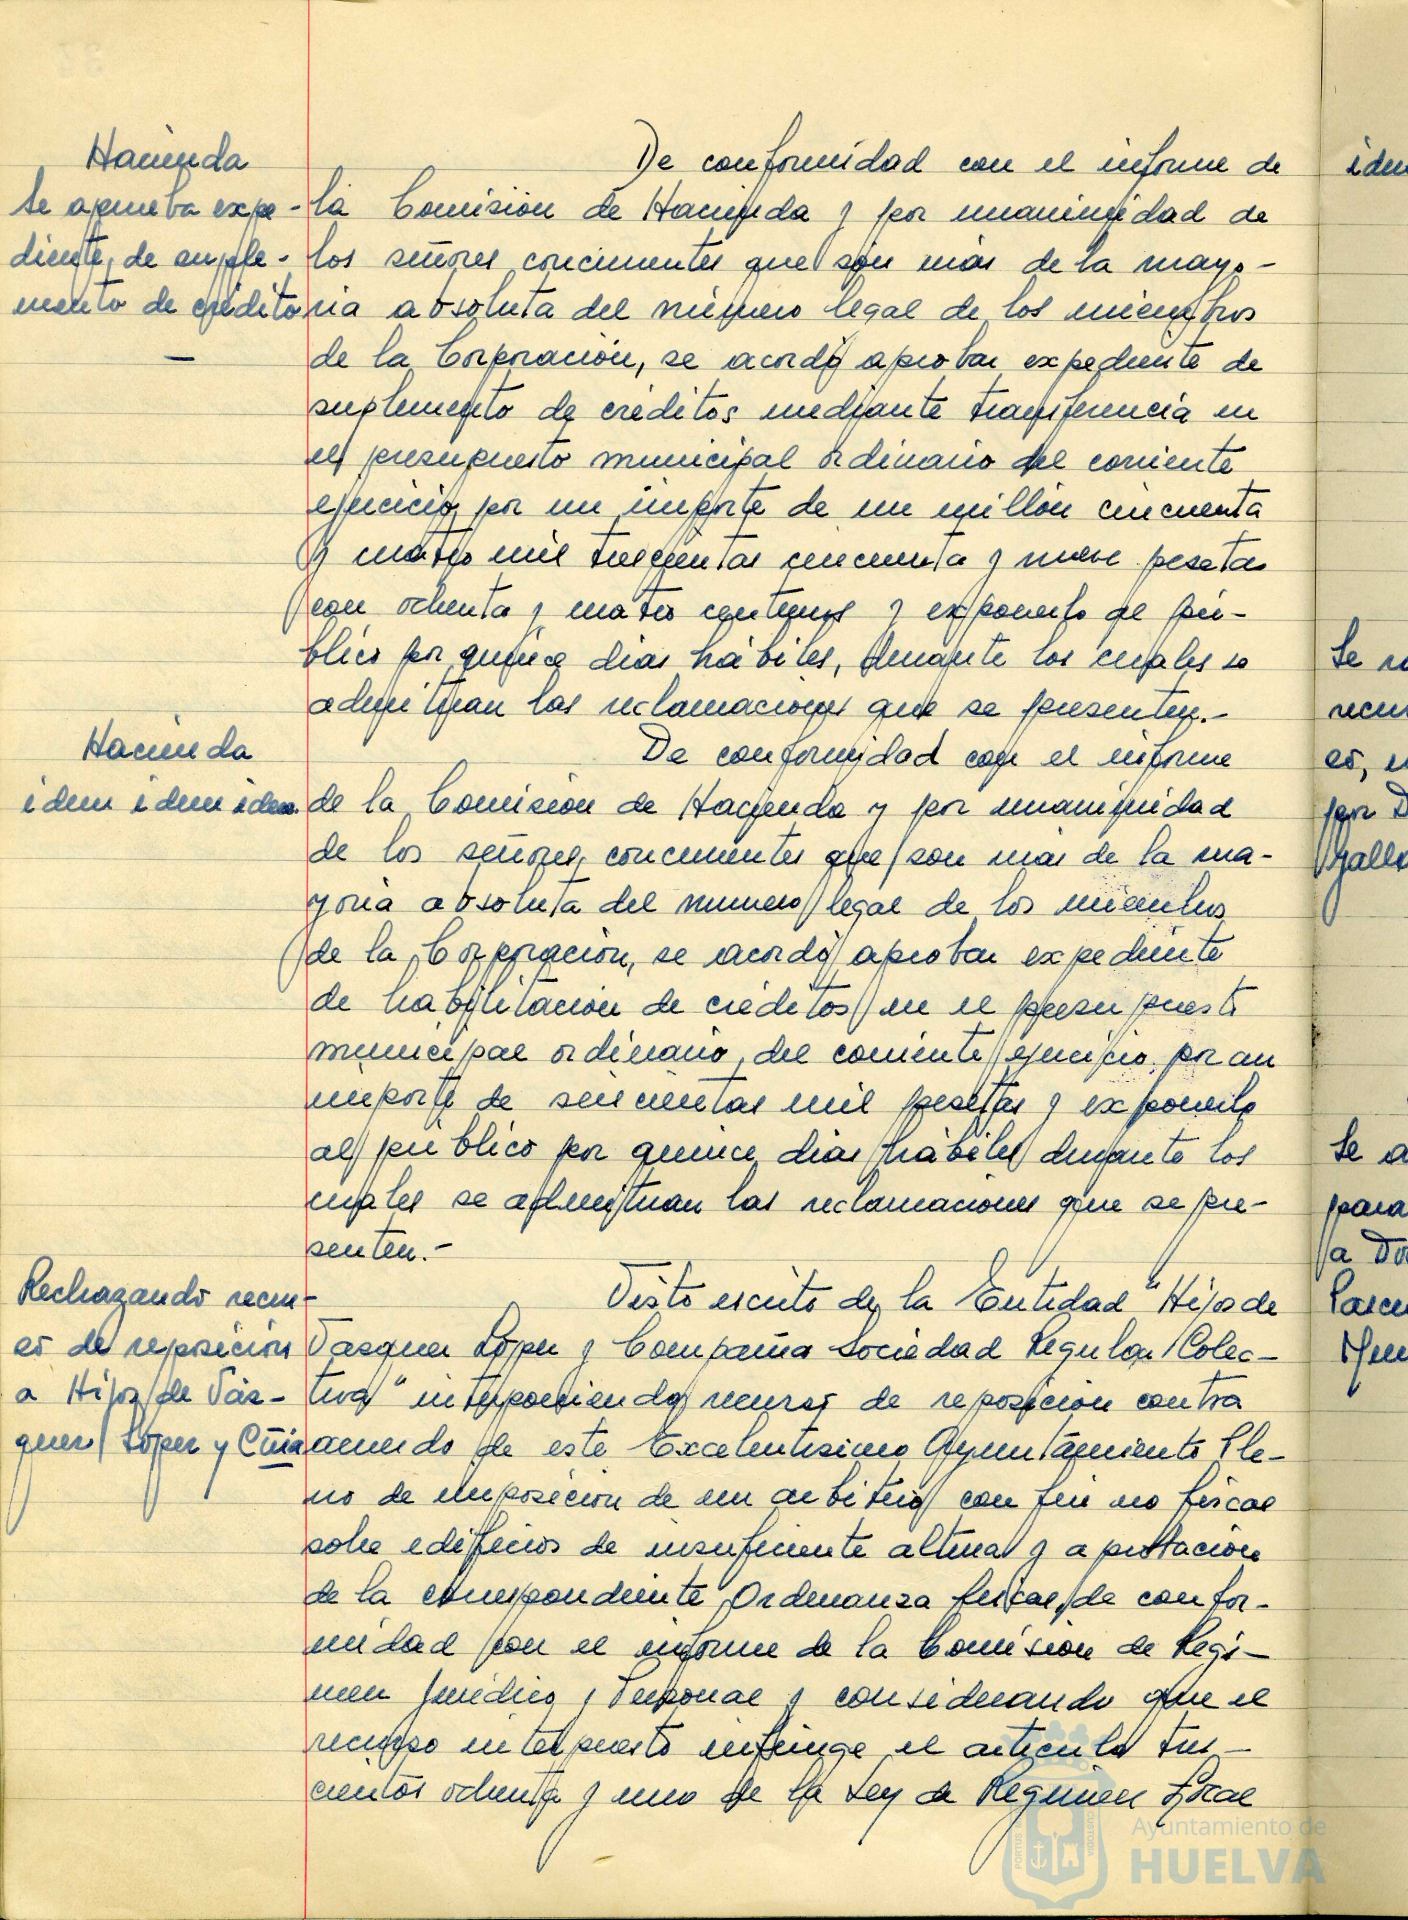 Hacienda
Se aprueba expe-
diente de suple-
mento de crédito
De conformidad con el informe de
la Comisión de Hacienda y por unanimidad de
los señores concurrentes que son más de la mayo-
ria absoluta del número legal de los miembros
de la Corporación, se acordó aprobar expediente de
suplemento de créditos mediante transferencia en
el presupuesto municipal ordinario del corriente
ejercicio por un importe de un millón cincuenta
y cuatro mil trescientas cincuenta y nueve pesetas
con ochenta y cuatro centimos y exponerlo al pú-
blico por quince dias hábiles, durante los cuales se
admitiran las reclamaciones que se presenten.-
Hacienda
idem idem idem.
De conformidad con el informe
de la Comisión de Hacienda y por unanimidad
de los señores concurrentes que son más de la ma-
yoria absoluta del numero legal de los miembros
de la Corporación, se acordó aprobar expediente
de habilitación de créditos en el presupuesto
municipal ordinario, del corriente ejercicio por un
importe de seiscientas mil pesetas y exponerlo
al público por quince dias hábiles durante los
cuales se admitiran las reclamaciones que se pre-
senten.-
Rechazando recur-
so de reposición
a Hijos de Vás-
quez López y Cñia
Visto escrito de la Entidad "Hijos de
Vasquez López y Compañia Sociedad Regular Colec-
tiva" interponiendo recurso de reposición contra
acuerdo de este Excelentisimo Ayuntamiento Ple-
no de imposición de un arbitrio con fin no fiscal
sobre edificios de insuficiente altura y aprobación
de la correspondiente Ordenanza fiscal, de confor-
midad con el informe de la Comisión de Regi-
men Juridico y Personal y considerando que el
recurso interpuesto infringe el articulo tres-
cientos ochenta y uno de la Ley de Regimen Local
idem
Se
recur
so,
por D
Gallo
Se a
para
a Do
Ayuntamiento de
HUELVA